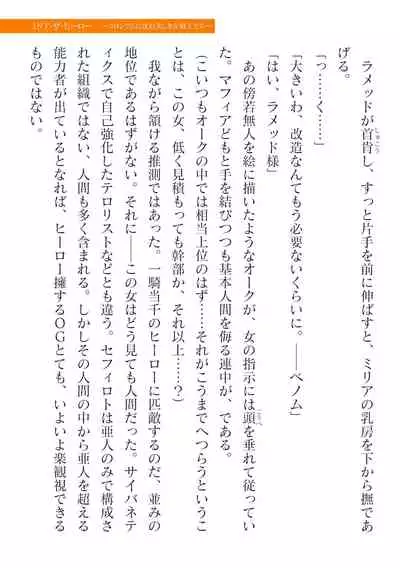 ミリア・ザ・ヒーロー
ラメッドが首肯し、すっと片手を前に伸ばすと、ミリアの乳房を下から撫であ
げる。
「っ……く……」
「大きいわ、改造なんてもう必要ないくらいに。――ベノム」
「はい、ラメッド様」
あの傍若無人を絵に描いたようなオークが、女の指示には頭を垂れて従ってい
た。マフィアどもと手を結びつつも基本人間を侮る連中が、である。
（こいつもオークの中では相当上位のはず……それがこうまでへつらうというこ
とは、この女、低く見積もっても幹部か、それ以上……？）
我ながら頷ける推測ではあった。一騎当千のヒーローに匹敵するのだ、並みの
地位であるはずがない。それに――この女はどう見ても人間だった。サイバネテ
ィクスで自己強化したテロリストなどとも違う。セフィロトは亜人のみで構成さ
れた組織ではない、人間も多く含まれる。しかしその人間の中から亜人を超える
能力者が出ているとなれば、ヒーロー擁するOGとても、いよいよ楽観視できる
ものではない。